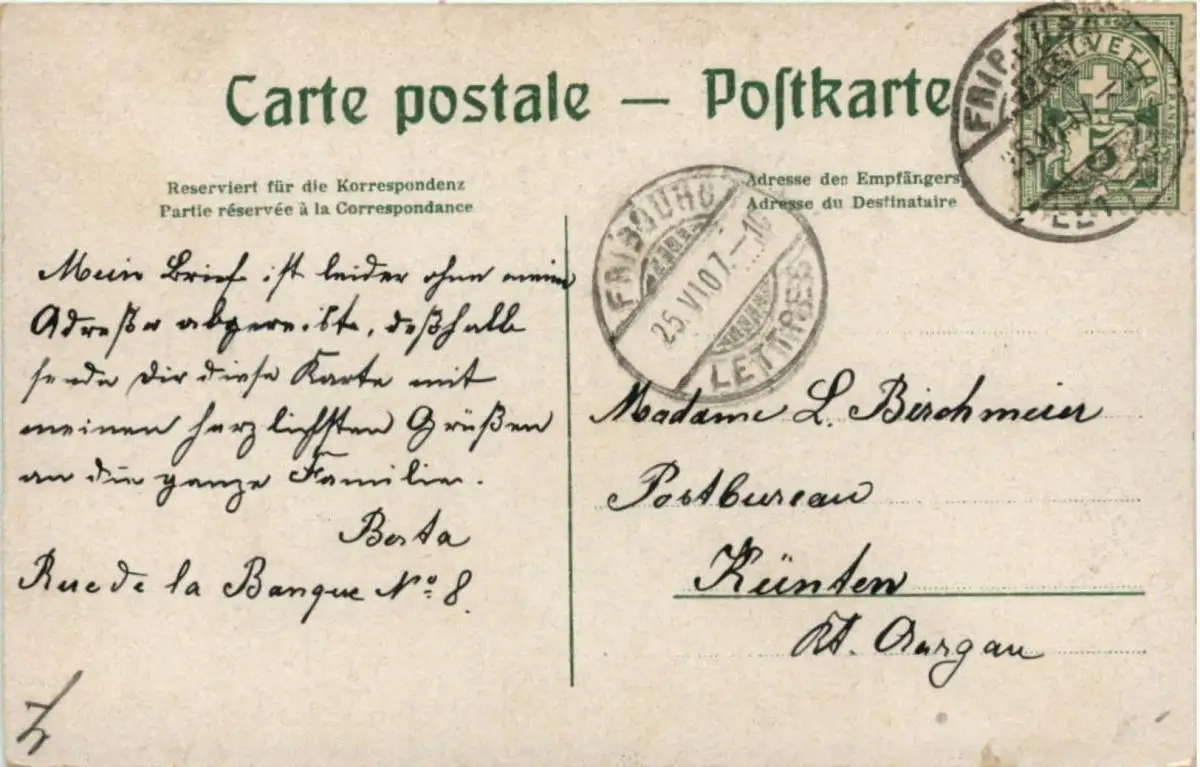 Carte postale — Postkarte
Reserviert für die Korrespondenz
Partie réservée à la Correspondance
Adresse des Empfängers
Adresse du Destinataire
HELVETIA
5
FRIBOURG
25.VI.07.—10
LETTRES
Mein Brief ist leider ohne meine
Adresse abgereist, deßhalb
sende Dir diese Karte mit
meinen herzlichsten Grüßen
an die ganze Familie.
Berta
Rue de la Banque No. 8.
Madame L. Birchmeier
Postbureau
Künten
Kt. Aargau